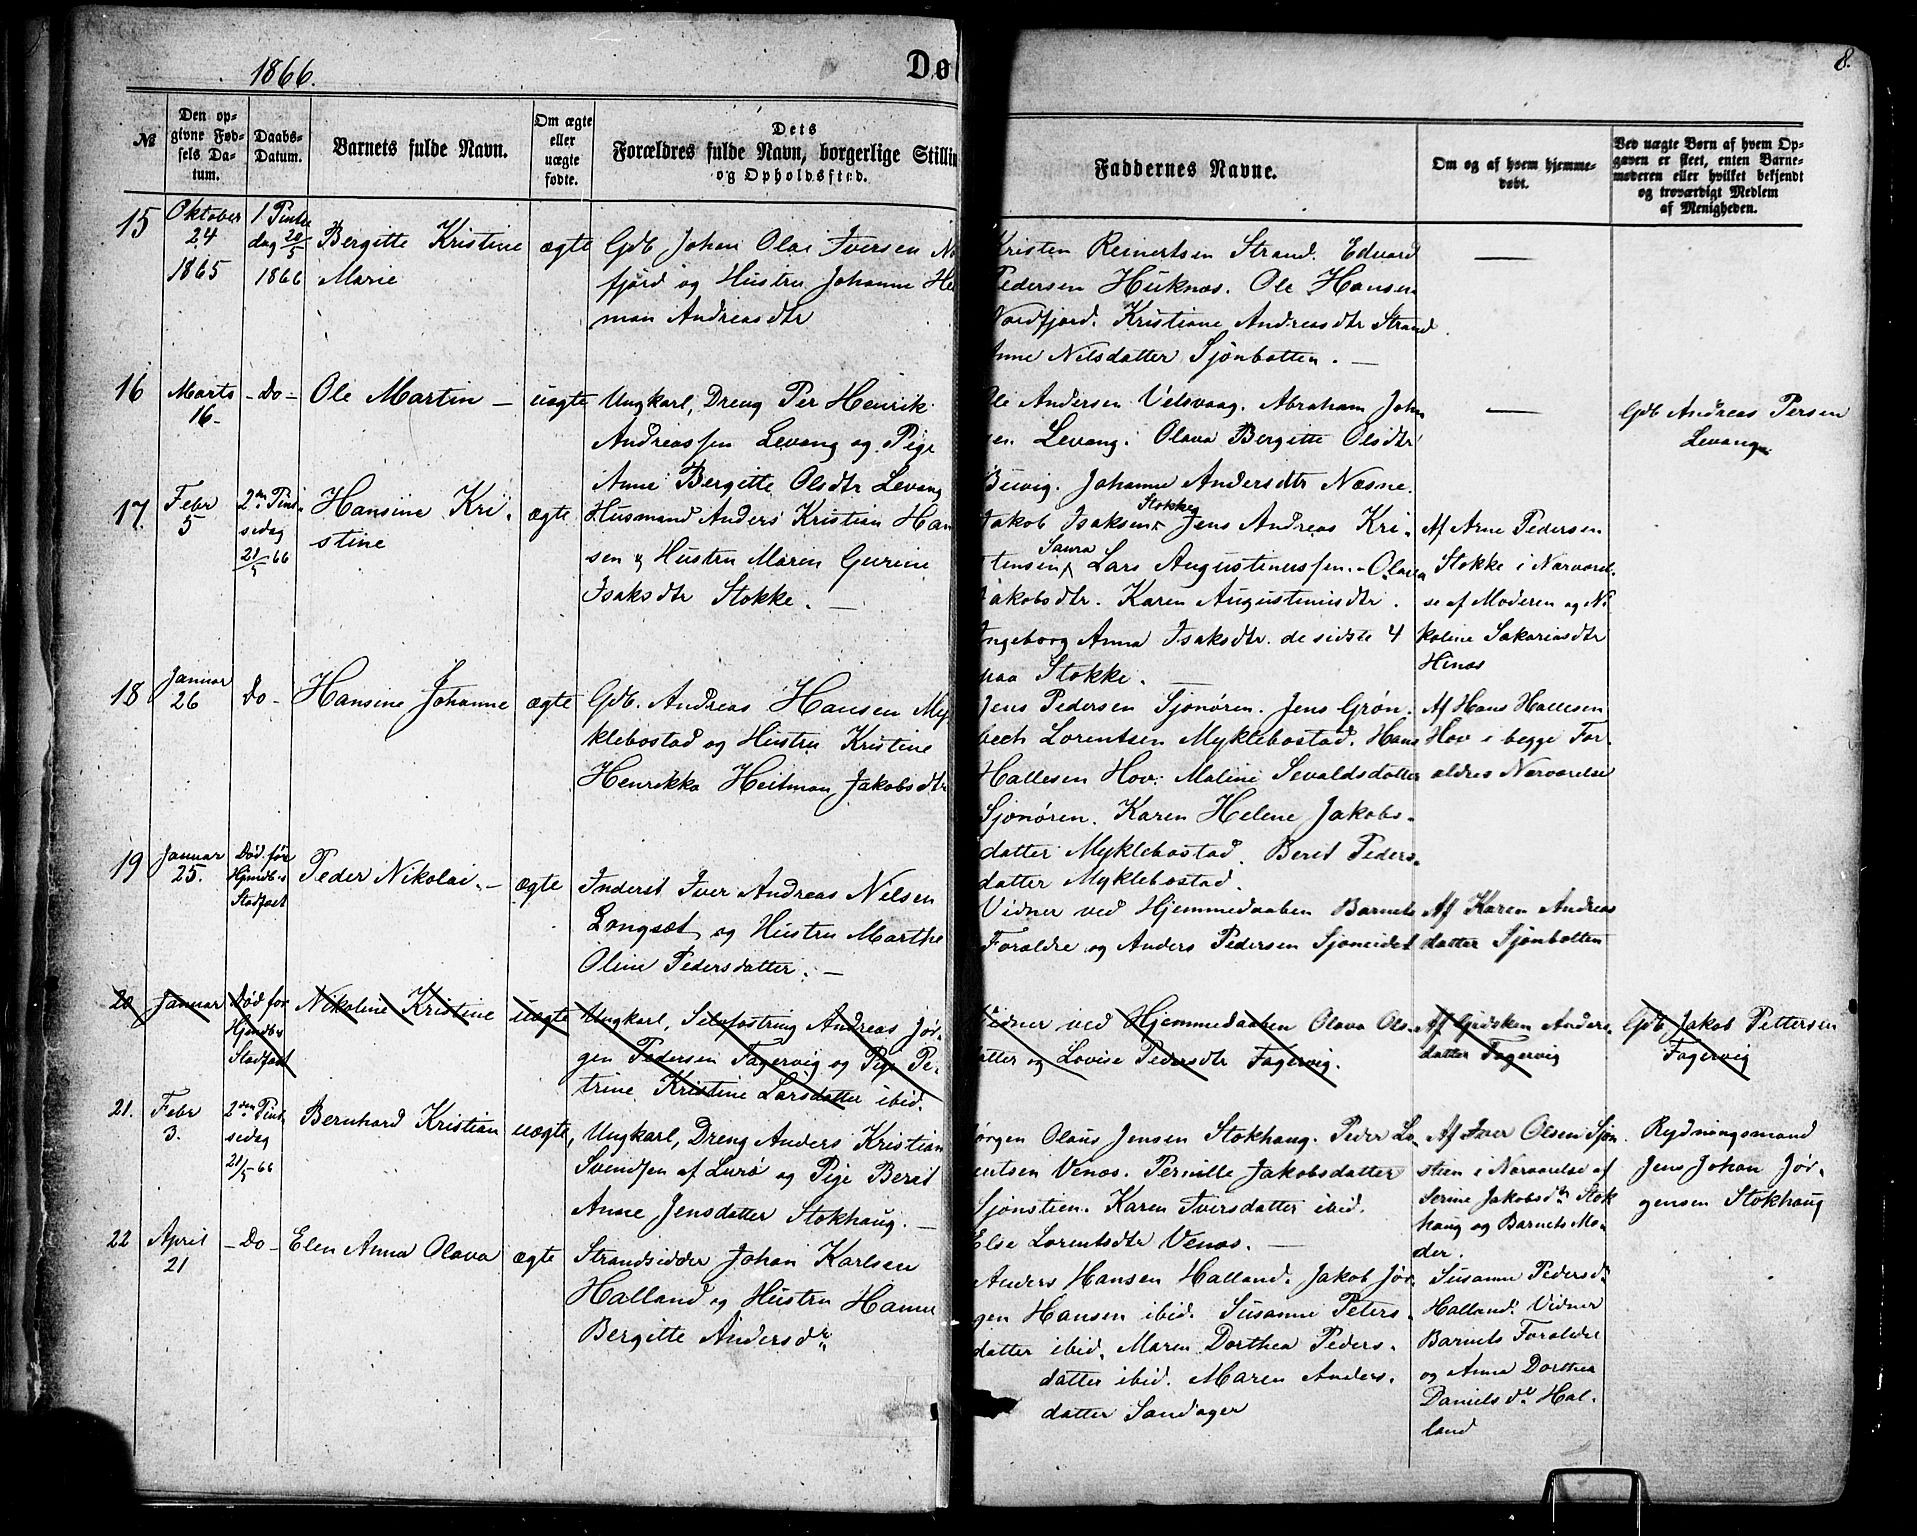 1866.
Dø
8.
№
Den op-
givne Fød-
sels Da-
tum.
Daabs-
Datum.
Barnets fulde Navn.
Om ægte
eller
uægte
fødte.
Dets
Forældres fulde Navn, borgerlige Stillin
og Opholdssted.
Faddernes Navne.
Om og af hvem hjemme-
døbt.
Ved uægte Børn af hvem Op-
gaven er skeet, enten Barne-
moderen eller hvilket bekjendt
og troværdigt Medlem
af Menigheden.
15
Oktober
24
1865
1 Pintse
dag 20/5
1866
Bergitte Kristine
Marie
ægte
Gdb Johan Olai Iversen No
fjord og Hustru Johanne He
man Andreasdtr
Kristen Reinertsen Strand. Edvard
Pedersen Huknæs. Ole Hansen
Nordfjord. Kristiane Andreasdtr Strand.
Anne Nilsdatter Sjonbotten. —
—
16
Marts
16.
- Do -
Ole Martin —
uægte
Ungkarl, Dreng Per Henrik
Andreassen Levang og Pige
Anne Bergitte Olsdtr Levang
Ole Andersen Velsvaag. Abraham John
sen Levang. Olava Bergitte Olsdtr
Buvig. Johanne Andersdtr Næsne.
—
Gdb Andreas Persen
Levang.
17.
Febr
5
2den Pint-
sedag
21/5 66
Hansine Kri-
stine
ægte
Husmand Anders Kristian Han
sen & Hustru Maren Gurine
Isaksdtr Stokke. —
Stokke
Jakob Isaksen Jens Andreas Kri-
Saura
stensen Lars Augustinussen. - Olava
Jakobsdtr. Karen Augustinusdtr.
Ingeborg Anna Isaksdtr. de sidste 4
paa Stokke. —
Af Arne Pedersen
Stokke i Nærværel-
se af Moderen og Ni
koline Sakariasdtr
Hinas
18
Januar
26
Do -
Hansine Johanne
ægte
Gdb. Andreas Hansen My
klebostad og Hustru Kristine
Henrikka Heitman Jakobsdtr
Jens Pedersen Sjonøren. Jens Grøn-
bech Lorentsen Myklebostad. Hans
Hallesen Hov. Maline Sevaldsdatter
Sjonøren. Karen Helene Jakobs-
datter Myklebostad. Berit Peders-
datter Myklebostad.
Af Hans Hallesen
Hov i begge For-
ældres Nærværelse
19
Januar
25.
Død før
Hjmdb's
Stadfæst
Peder Nikolai. —
ægte
Inderst Iver Andreas Nilsen
Langsæt og Hustru Marthe
Oline Pedersdatter. —
Vidner ved Hjemmedaaben Barnets
Forældre og Anders Pedersen Sjoneidet
Af Karen Andreas
datter Sjonbotten
20
Januar
Død før
Hjmdb's
Stadfæst
Nikoline Kristine
uægte
Ungkarl, Selvfostring Andreas Jør-
gen Pedersen Fagervig og Pige Pe-
trine Kristine Larsdatter ibid.
Vidner ved Hjemmedaaben Olava Ols-
datter og Lovise Pedersdtr Fagervig.
Af Gidsken Anders-
datter Fagervig
Gdb Jakob Pettersen
Fagervig
21.
Febr
3.
2den Pint
sedag
21/5 66
Bernhard Kristian
uægte,
Ungkarl, Dreng Anders Kristian
Svendsen af Lurø og Pige Berit
Anne Jensdatter Stokhaug. —
Jørgen Olaus Jensen Stokhaug. Peder Lo-
rentsen Venæs. Pernille Jakobsdatter
Sjonstien. Karen Iversdatter ibid.
Else Lorentsdtr Venæs. —
Af Iver Olsen Sjon
stien i Nærværelse af
Serine Jakobsdtr Stok
haug og Barnets Mo-
der.
Rydningsmand
Jens Johan Jør-
gensen Stokhaug
22
April
21
- Do -
Elen Anna Olava
ægte
Strandsidder Johan Karlsen
Halland og Hustru Hanna
Bergitte Andersdr
Anders Hansen Halland. Jakob Jør-
gen Hansen ibid. Susanne Peters-
datter ibid. Maren Dorthea Peders-
datter ibid. Maren Anders-
datter Sandager
Susanne Pedersdr
Halland. Vidner
Barnets Forældre
og Anna Dorthea
Danielsdr Hal-
land